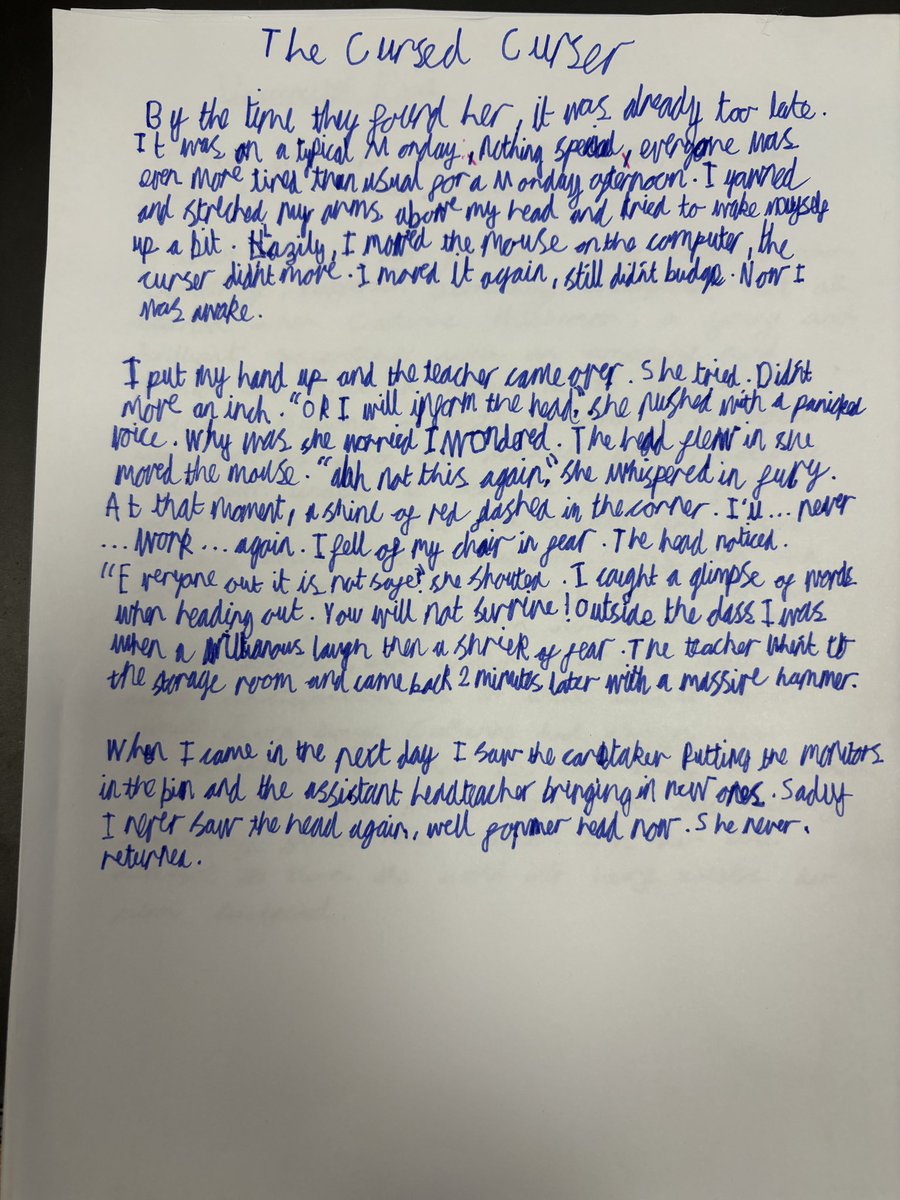 The Cursed Curser
By the time they found her, it was already too late.
It was on a typical Monday, nothing special, everyone was
even more tired than usual for a Monday afternoon. I yawned
and streched my arms above my head and tried to wake myself
up a bit. Lazily, I moved the mouse on the computer, the
curser didn't move. I moved it again, still didn't budge. Now I
was awake.
I put my hand up and the teacher came over. She tried. Didn't
move an inch. "OK I will inform the head," she rushed with a panicked
voice. Why was she worried I wondered. The head flew in she
moved the mouse. "ahh not this again," she whispered in fury.
At that moment, a shine of red flashed in the corner. I'll... never
... work ... again. I fell of my chair in fear. The head noticed.
"Everyone out it is not safe" she shouted. I caught a glimpse of words
when heading out. You will not survive! Outside the class I was
when a laugh then a shriek of fear. The teacher whent to
the storage room and came back 2 minutes later with a massive hammer.
When I came in the next day I saw the caretaker putting the monitors
in the bin and the assistant headteacher bringing in new ones. Sadly
I never saw the head again, well former head now. She never.
returned.